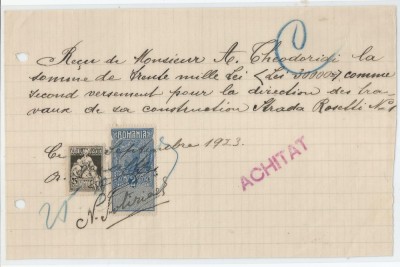 Reçu de Monsieur A. Theodoridi la
somme de trente mille Lei (Lei 30000) comme
second versement pour la direction des tra-
vaux de sa construction Strada Rosetti No
Ce Septembre 1923.
ROMANIA
ACHITAT
N.